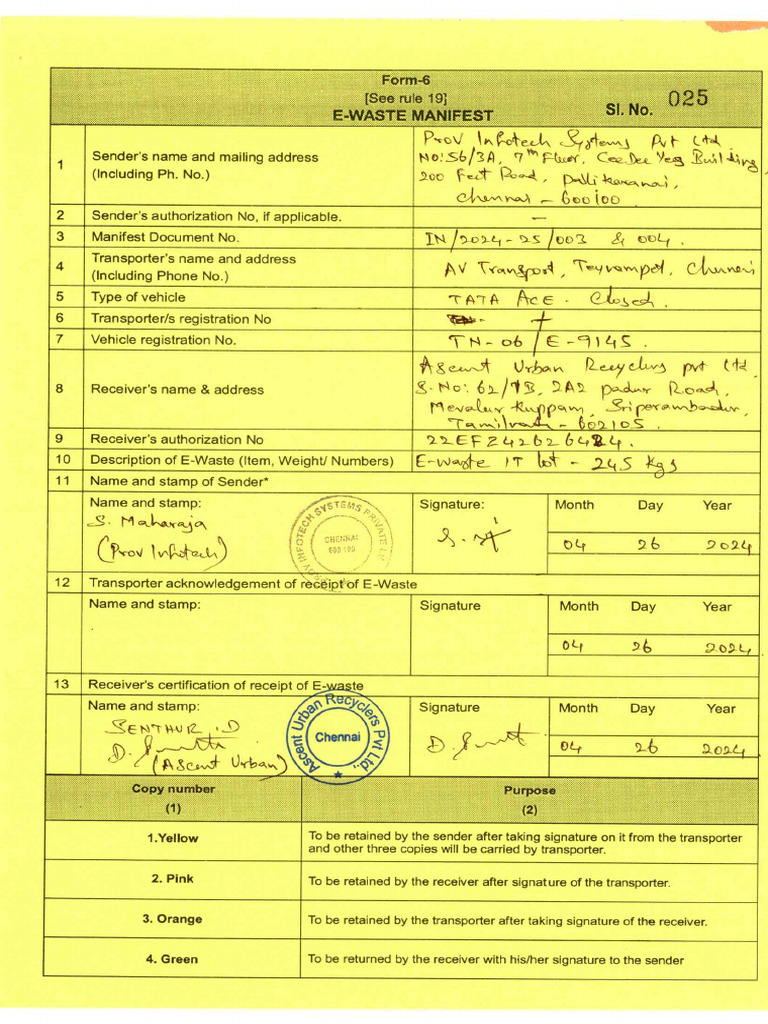 Form-6
[See rule 19]
E-WASTE MANIFEST
Sl. No. 025
1 Sender's name and mailing address (Including Ph. No.)
Prov Infotech Systems Pvt Ltd.
No: 56/3A, 7th Floor, CeeDee Yes Building,
200 Feet Road, Pallikaranai,
Chennai - 600100.
2 Sender's authorization No, if applicable. –
3 Manifest Document No. IN/2024-25/003 & 004.
4 Transporter's name and address (Including Phone No.) AV Transport, Teynampet, Chennai
5 Type of vehicle TATA ACE - Closed.
6 Transporter/s registration No
7 Vehicle registration No. TN-06/E-9145.
8 Receiver's name & address
Ascent Urban Recyclers pvt Ltd
S.No: 62/1B, 2A2 padur Road,
Mevalur kuppam, Sriperambadur,
Tamilnadu - 602105.
9 Receiver's authorization No
10 Description of E-Waste (Item, Weight/ Numbers) E-waste IT lot - 245 kgs
11 Name and stamp of Sender*
Name and stamp: Signature: Month Day Year
S. Maharaja
(Prov Infotech)
CHENNAI
600 100
04 26 2024
12 Transporter acknowledgement of receipt of E-Waste
Name and stamp: Signature Month Day Year
04 26 2024
13 Receiver's certification of receipt of E-waste
Name and stamp: Signature Month Day Year
SENTHUR .D
(Ascent Urban)
Ascent Urban Recyclers Pvt Ltd.,
Chennai
04 26 2024
Copy number Purpose
(1) (2)
1.Yellow To be retained by the sender after taking signature on it from the transporter
and other three copies will be carried by transporter.
2. Pink To be retained by the receiver after signature of the transporter.
3. Orange To be retained by the transporter after taking signature of the receiver.
4. Green To be returned by the receiver with his/her signature to the sender